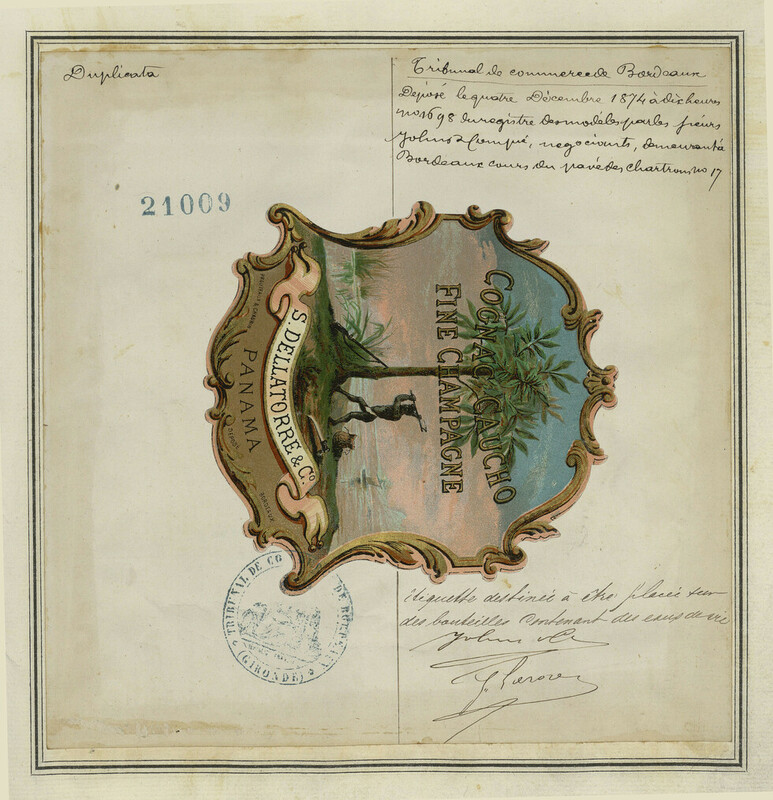 Duplicata
Tribunal de commerce de Bordeaux
Déposé le quatre Décembre 1874 à dix heures
no 1698 du registre des modèles par les sieurs
Johns & Compie, négociants, demeurant à
Bordeaux cours du pavé des Chartrons no 17
21009
COGNAC GAUCHO
FINE CHAMPAGNE
S. DELLATORRE & Co.
PANAMA
DÉPOSÉ
BORDEAUX
TRIBUNAL DE CO DE BORDEAUX
(GIRONDE)
étiquette destinée à être placée sur
des bouteilles contenant des eaux de vie
Johns & Co